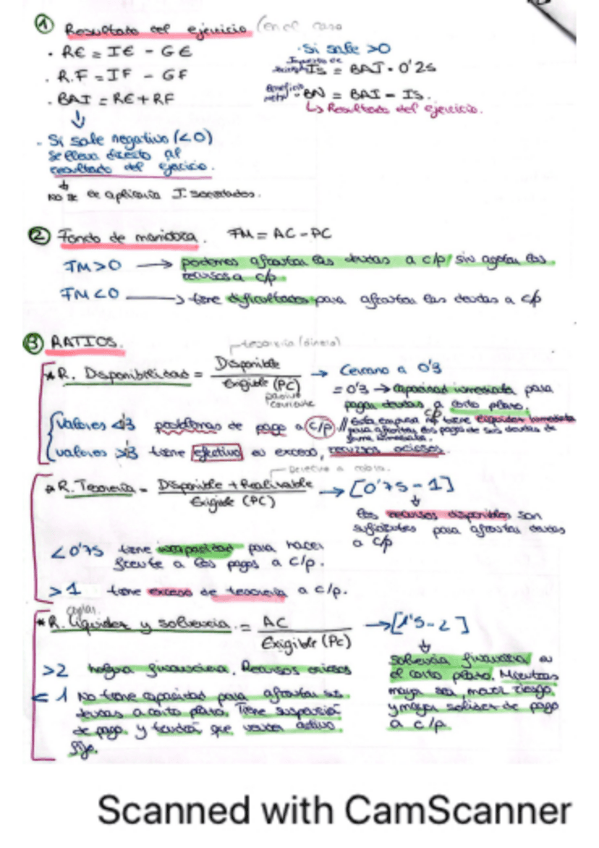 ① Resultado del ejercicio (en el caso
· RE = IE - GE
· R.F = IF - GF
· BAI = RE + RF
· Si sale negativo (<0)
se lleva directo al
resultado del ejercicio.
No se aplicaría I. sociedades.
· Si sale >0
Impuesto de
IS = BAI · 0'25
Beneficio
neto
BN = BAI - IS.
↳ Resultado del ejercicio.
② Fondo de maniobra. FM = AC - PC
FM>0 → podemos afrontar las deudas a c/p sin agotar los
recursos a c/p
FM<0 → tiene dificultades para afrontar las deudas a c/p
③ RATIOS.
tesorería (dinero)
* R. Disponibilidad = Disponible / Exigible (PC)
pasivo corriente
→ Cercano a 0'3
= 0'3 → capacidad inmediata para
pagar deudas a corto plazo.
Valores <0'3 problemas de pago a c/p // Esta empresa no tiene liquidez inmediata
para afrontar los pagos de sus deudas de
forma inmediata.
valores >0'3 tiene efectivo en exceso, recursos ociosos.
* R. Tesorería = Disponible + Realizable / Exigible (PC) → [0'75 - 1]
los recursos disponibles son
suficientes para afrontar deudas
a c/p
<0'75 tiene incapacidad para hacer
frente a los pagos a c/p.
>1 tiene exceso de tesorería a c/p.
* R. Liquidez y solvencia = AC / Exigible (PC) → [1'5 - 2]
solvencia financiera en
el corto plazo. Mientras
mayor sea, menor riesgo,
y mayor solidez de pago
a c/p.
>2 holgura financiera. Recursos ociosos
< 1 No tiene capacidad para afrontar sus
deudas a corto plazo. Tiene suspensión
de pago. y tendrá que vender activo
fijo.
Scanned with CamScanner